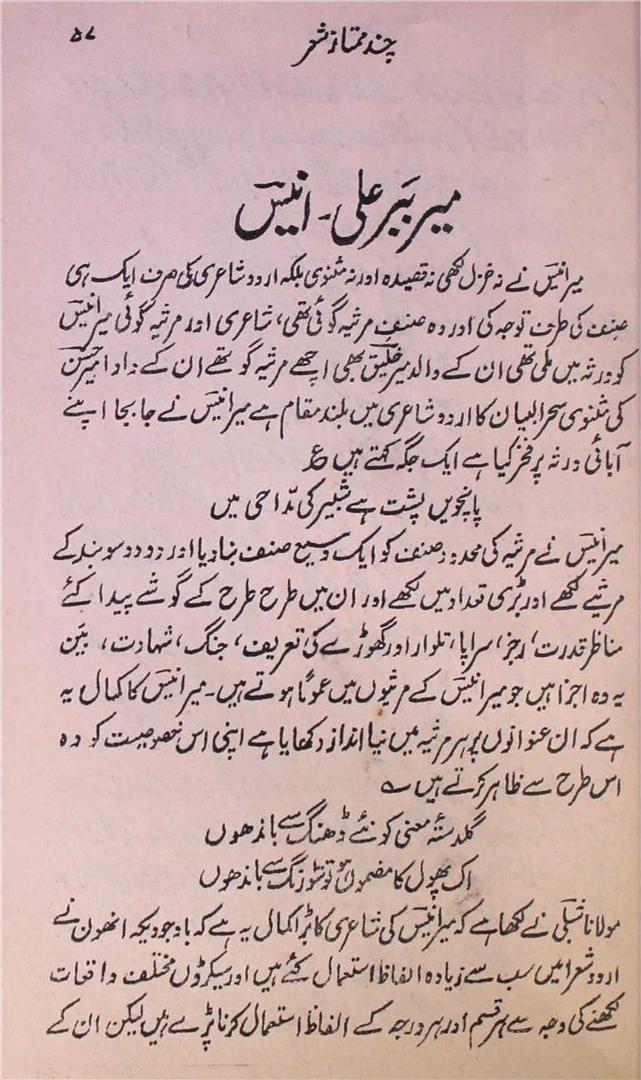 چند ممتاز شعر
۵۷
میر ببر علی - انیسؔ
میر انیسؔ نے نہ غزل لکھی نہ قصیدہ اور نہ مثنوی بلکہ اردو شاعری کی صرف ایک ہی
صنف کی طرف توجہ کی اور وہ صنفِ مرثیہ گوئی تھی، شاعری اور مرثیہ گوئی میر انیسؔ
کو ورثہ میں ملی تھی ان کے والد میر خلیقؔ بھی اچھے مرثیہ گو تھے ان کے دادا میر حسنؔ
کی مثنوی سحر البیان کا اردو شاعری میں بلند مقام ہے میر انیسؔ نے جا بجا اپنے
آبائی ورثہ پر فخر کیا ہے ایک جگہ کہتے ہیں ؏
پانچویں پشت ہے شبیر کی مدّاحی میں
میر انیسؔ نے مرثیہ کی محدود صنف کو ایک وسیع صنف بنا دیا اور دو دو سو بند کے
مرثیے لکھے اور بڑی تعداد میں لکھے اور ان میں طرح طرح کے گوشے پیدا کئے
مناظر قدرت، رجز، سراپا، تلوار اور گھوڑے کی تعریف، جنگ، شہادت، بین
یہ وہ اجزا ہیں جو میر انیسؔ کے مرثیوں میں عموماً ہوتے ہیں۔ میر انیسؔ کا کمال یہ
ہے کہ ان عنوانوں پر ہر مرثیہ میں نیا انداز دکھایا ہے اپنی اس خصوصیت کو وہ
اس طرح سے ظاہر کرتے ہیں ؎
گلدستۂ معنی کو نئے ڈھنگ سے باندھوں
اک پھول کا مضموں ہو تو سو رنگ سے باندھوں
مولانا شبلیؔ نے لکھا ہے کہ میر انیسؔ کی شاعری کا بڑا کمال یہ ہے کہ باوجودیکہ انھوں نے
اردو شعرا میں سب سے زیادہ الفاظ استعمال کئے ہیں اور سیکڑوں مختلف واقعات
لکھنے کی وجہ سے ہر قسم اور ہر درجہ کے الفاظ استعمال کرنا پڑے ہیں لیکن ان کے